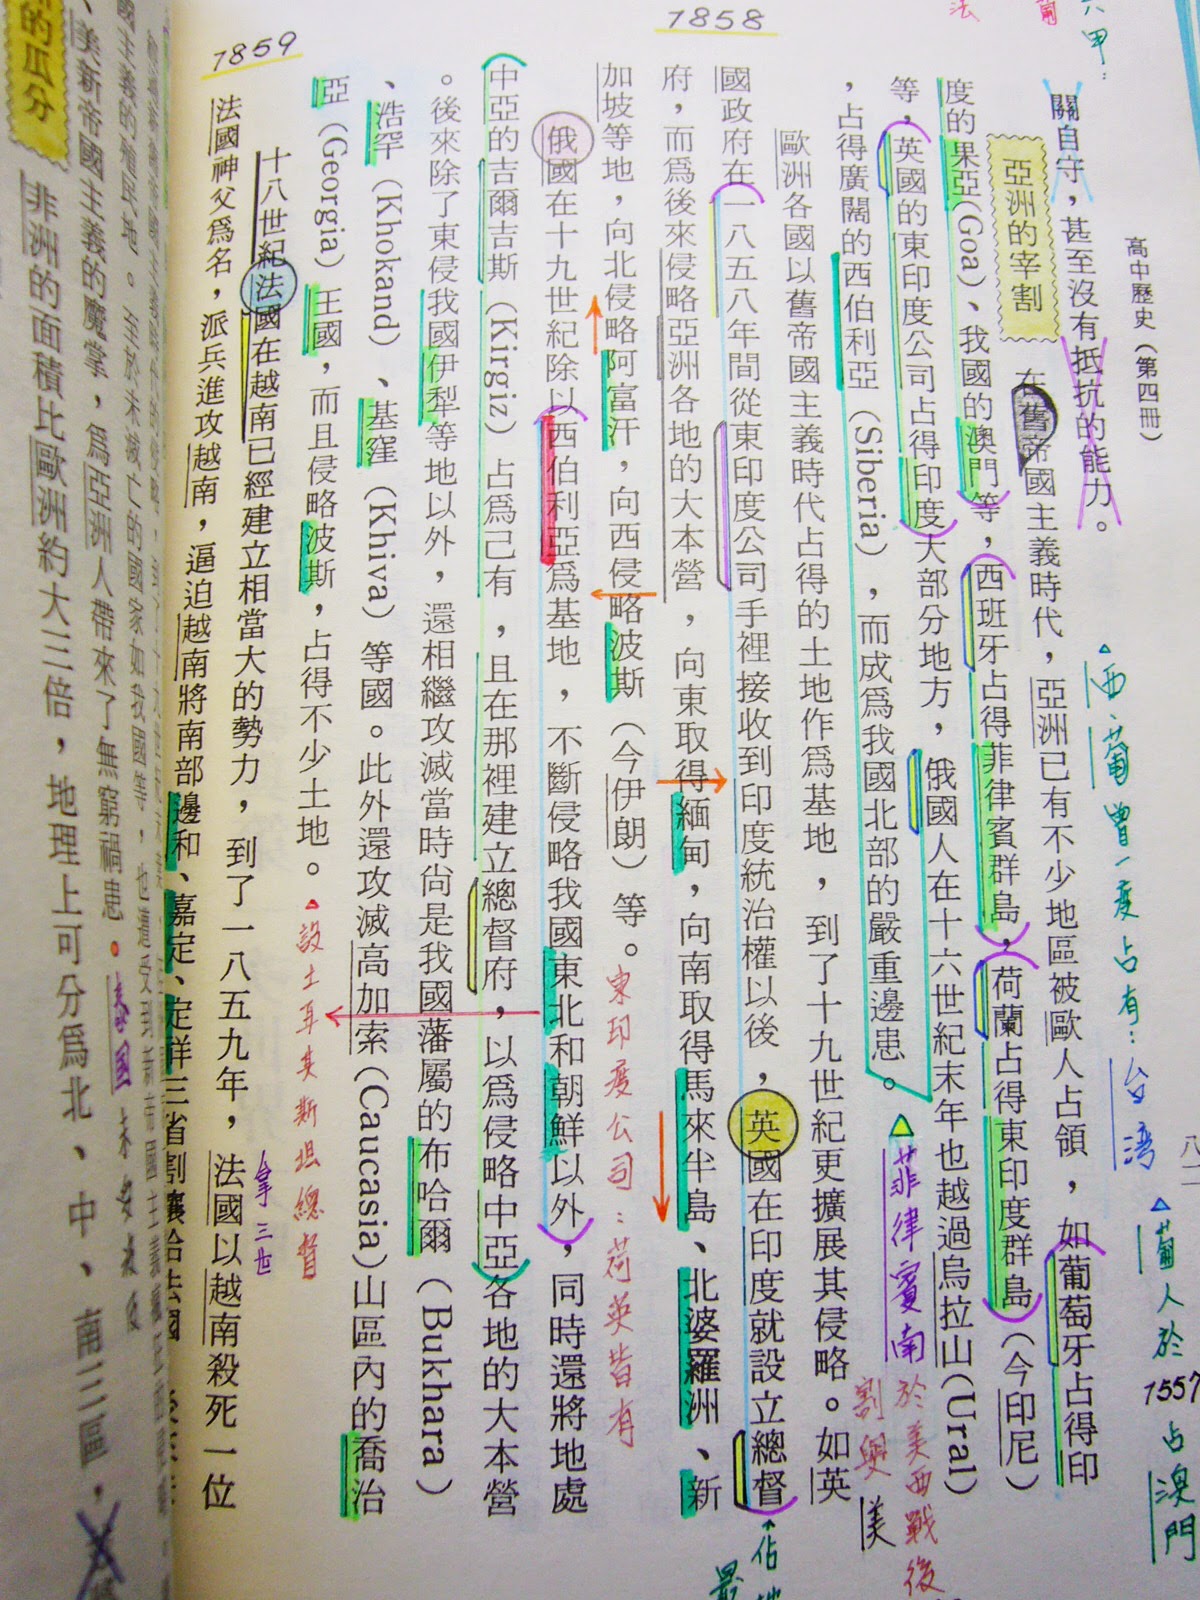 高中歷史（第四冊）
八二
關自守，甚至沒有抵抗的能力。
亞洲的宰割　在舊帝國主義時代，亞洲已有不少地區被歐人占領，如葡萄牙占得印
度的果亞(Goa)、我國的澳門等，西班牙占得菲律賓群島，荷蘭占得東印度群島（今印尼）
等，英國的東印度公司占得印度大部分地方，俄國人在十六世紀末年也越過烏拉山(Ural)
，占得廣闊的西伯利亞（Siberia），而成爲我國北部的嚴重邊患。
歐洲各國以舊帝國主義時代占得的土地作爲基地，到了十九世紀更擴展其侵略。如英
國政府在一八五八年間從東印度公司手裡接收到印度統治權以後，英國在印度就設立總督
府，而爲後來侵略亞洲各地的大本營，向東取得緬甸，向南取得馬來半島、北婆羅洲、新
加坡等地，向北侵略阿富汗，向西侵略波斯（今伊朗）等。
俄國在十九世紀除以西伯利亞爲基地，不斷侵略我國東北和朝鮮以外，同時還將地處
中亞的吉爾吉斯（Kirgiz）占爲己有，且在那裡建立總督府，以爲侵略中亞各地的大本營
。後來除了東侵我國伊犁等地以外，還相繼攻滅當時尚是我國藩屬的布哈爾（Bukhara）
、浩罕（Khokand）、基窪（Khiva）等國。此外還攻滅高加索(Caucasia)山區內的喬治
亞（Georgia）王國，而且侵略波斯，占得不少土地。
十八世紀法國在越南已經建立相當大的勢力，到了一八五九年，法國以越南殺死一位
法國神父爲名，派兵進攻越南，逼迫越南將南部邊和、嘉定、定祥三省割讓給法國
1858
1859
六甲：
葡
法
△西、葡曾一度占有：台湾
△葡人於1557占澳門
△菲律賓南
於美西戰後
割與美
佔地
最
東印度公司：荷英皆有
△設土耳其斯坦總督
拿三世
的瓜分
美新帝國主義的魔掌，爲亞洲人帶來了無窮禍患。
泰國
非洲的面積比歐洲約大三倍，地理上可分爲北、中、南三區，